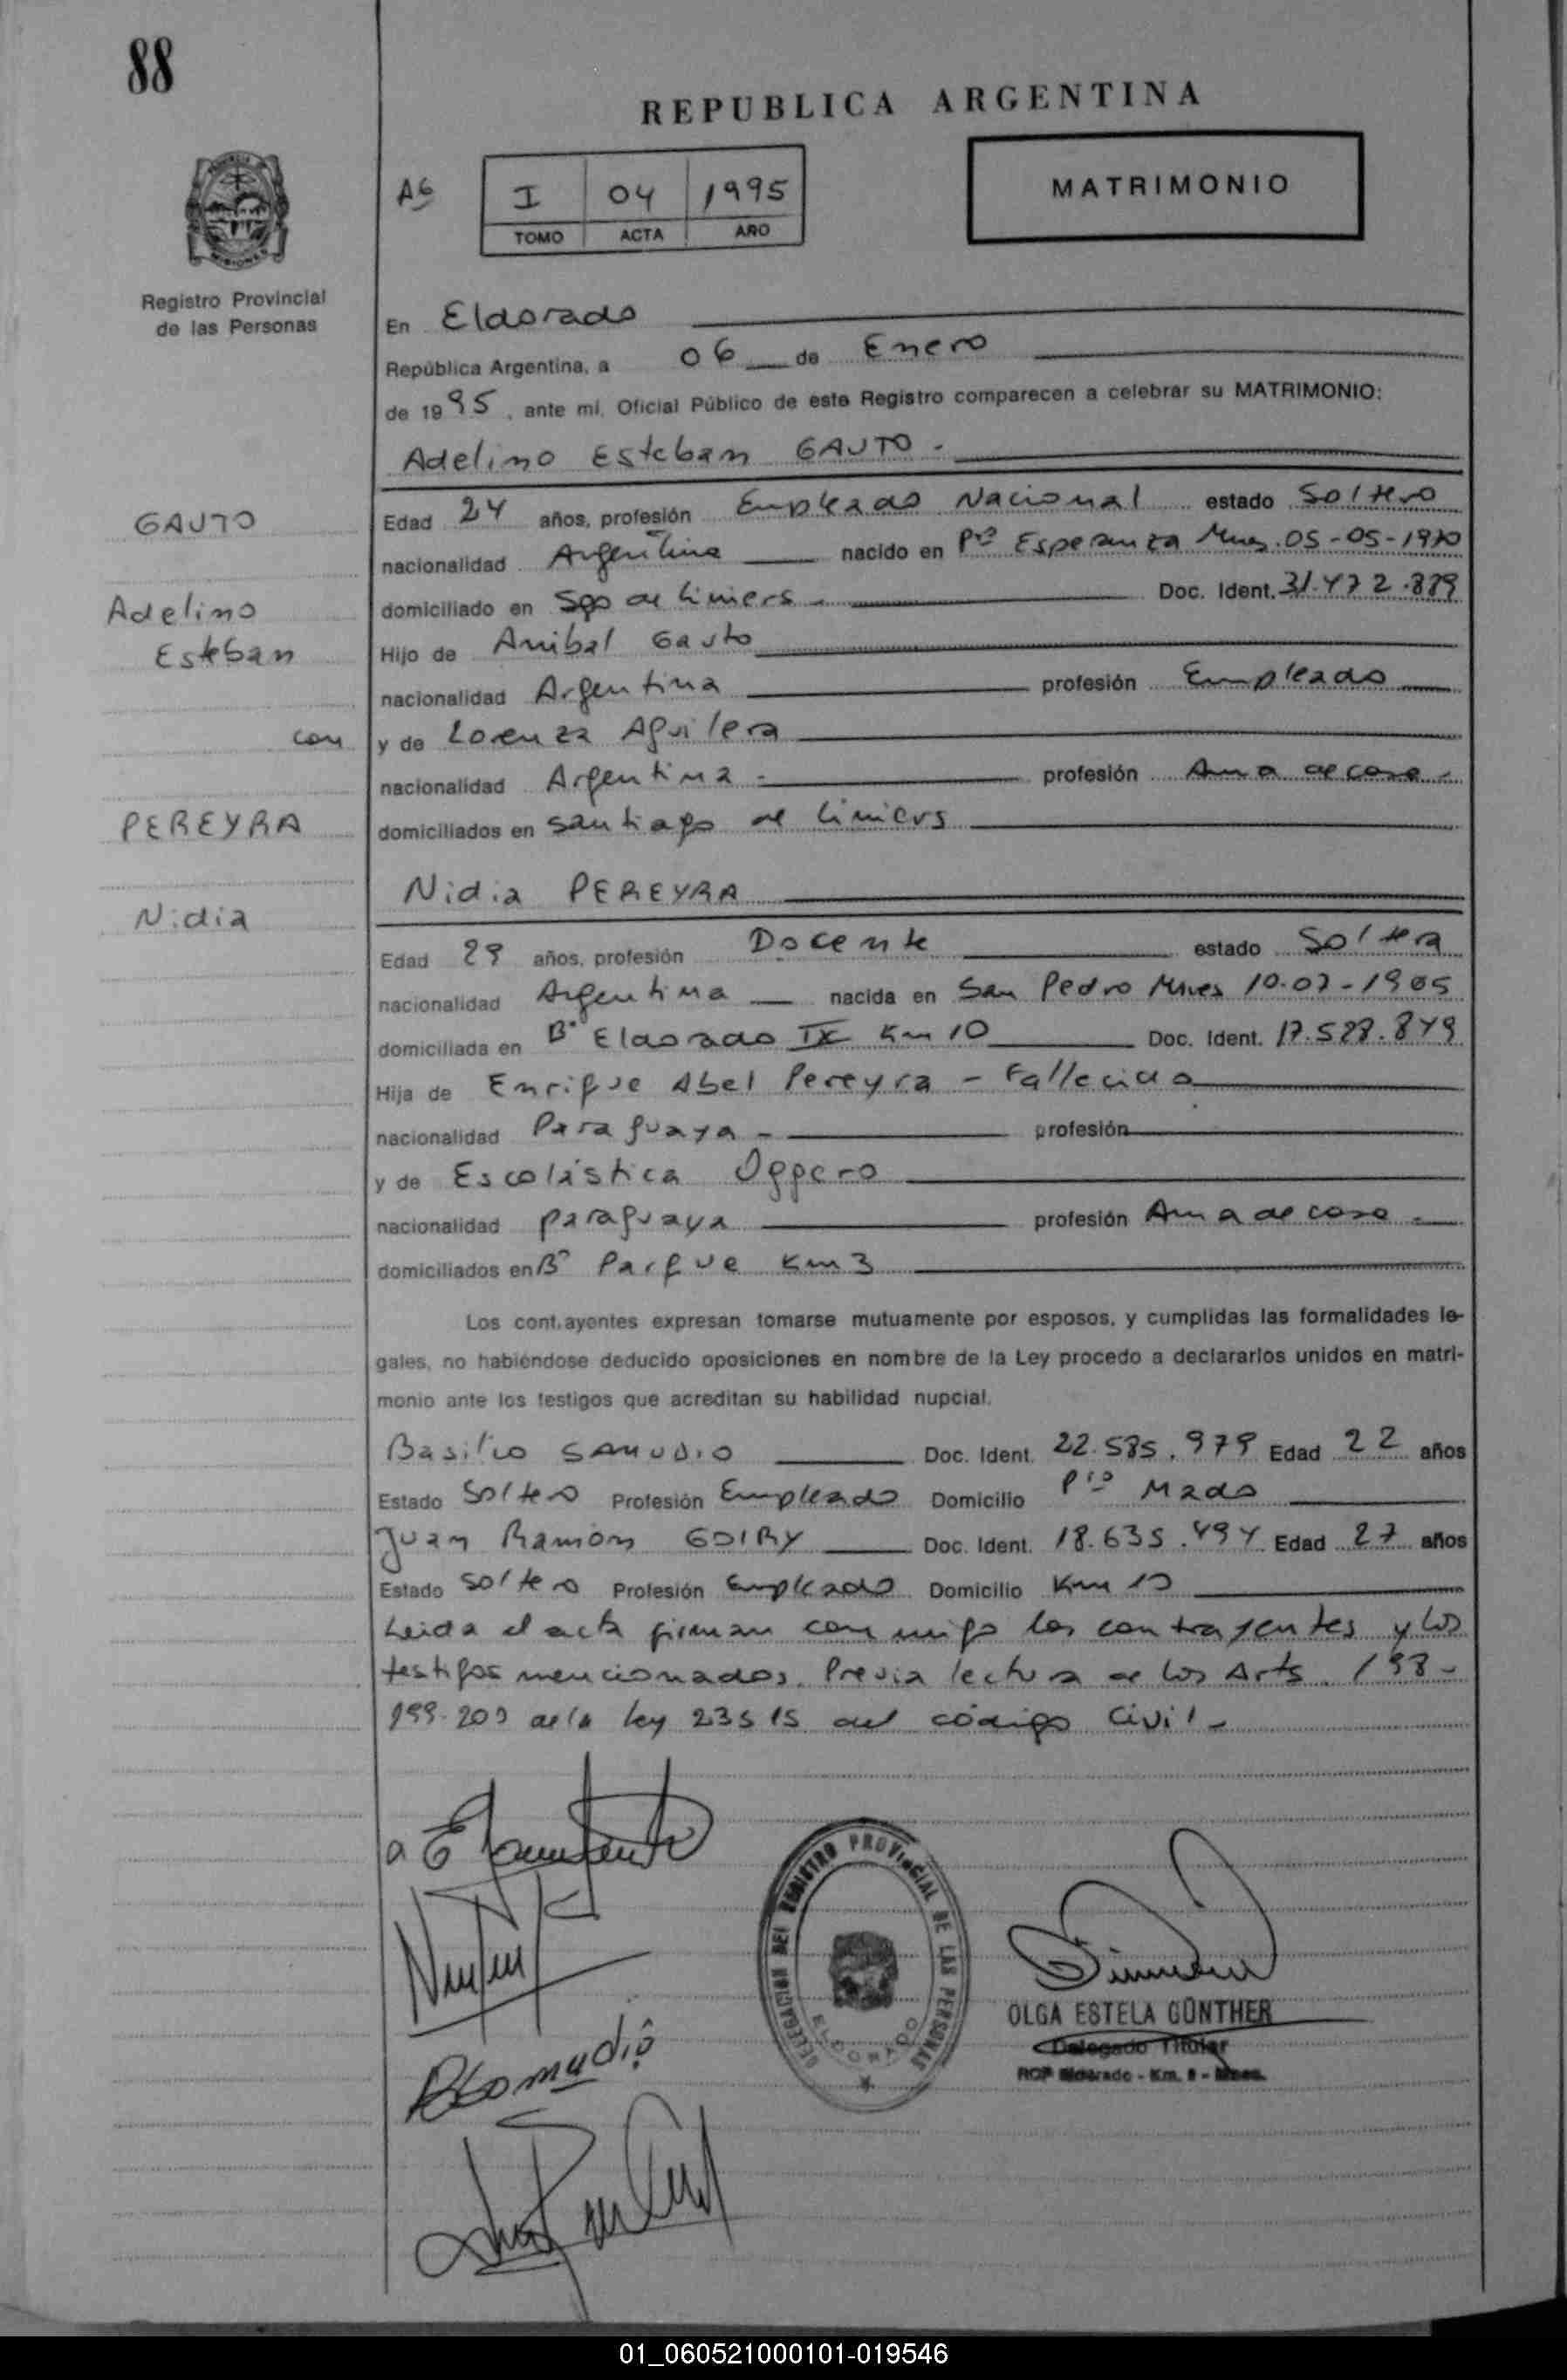 88
REPUBLICA ARGENTINA
A6 I 04 1995
TOMO ACTA AÑO
MATRIMONIO
Registro Provincial
de las Personas
En Eldorado
República Argentina, a 06 de Enero
de 1995, ante mi, Oficial Público de este Registro comparecen a celebrar su MATRIMONIO:
Adelino Esteban GAUTO -
GAUTO
Adelino
Esteban
con
PEREYRA
Nidia
Edad 24 años, profesión Empleado Nacional estado Soltero
nacionalidad Argentina nacido en Pto Esperanza Mnes. 05-05-1970
domiciliado en Sgo de Liniers - Doc. Ident. 31.472.889
Hijo de Anibal Gauto
nacionalidad Argentina profesión Empleado
y de Lorenza Aguilera
nacionalidad Argentina - profesión Ama de casa -
domiciliados en Santiago de Liniers
Nidia PEREYRA
Edad 29 años, profesión Docente estado Soltera
nacionalidad Argentina nacida en San Pedro Mnes 10-07-1965
domiciliada en B° Eldorado IX Km 10 Doc. Ident. 17.528.849
Hija de Enrique Abel Pereyra - Fallecido
nacionalidad Paraguaya - profesión
y de Escolástica Oggero
nacionalidad paraguaya profesión Ama de casa -
domiciliados en B° Parque Km 3
Los contrayentes expresan tomarse mutuamente por esposos, y cumplidas las formalidades le-
gales, no habiéndose deducido oposiciones en nombre de la Ley procedo a declararlos unidos en matri-
monio ante los testigos que acreditan su habilidad nupcial.
Basilio SAMUDIO Doc. Ident. 22.585.979 Edad 22 años
Estado Soltero Profesión Empleado Domicilio Pto Mado
Juan Ramón GODRY Doc. Ident. 18.635.494 Edad 27 años
Estado Soltero Profesión Empleado Domicilio Km 10
Leida el acta firman conmigo los contrayentes y los
testigos mencionados. Previa lectura de los Arts. 198-
199-200 de la ley 23515 del código Civil -
DELEGACION DEL REGISTRO PROVINCIAL DE LAS PERSONAS
ELDORADO
OLGA ESTELA GÜNTHER
Delegado Titular
RCP Eldorado - Km. 9 - Mnes.
01_060521000101-019546